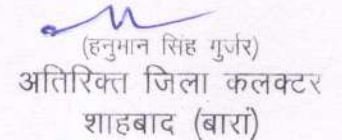 (हनुमान सिंह गुर्जर)
अतिरिक्त जिला कलक्टर
शाहबाद (बारां)